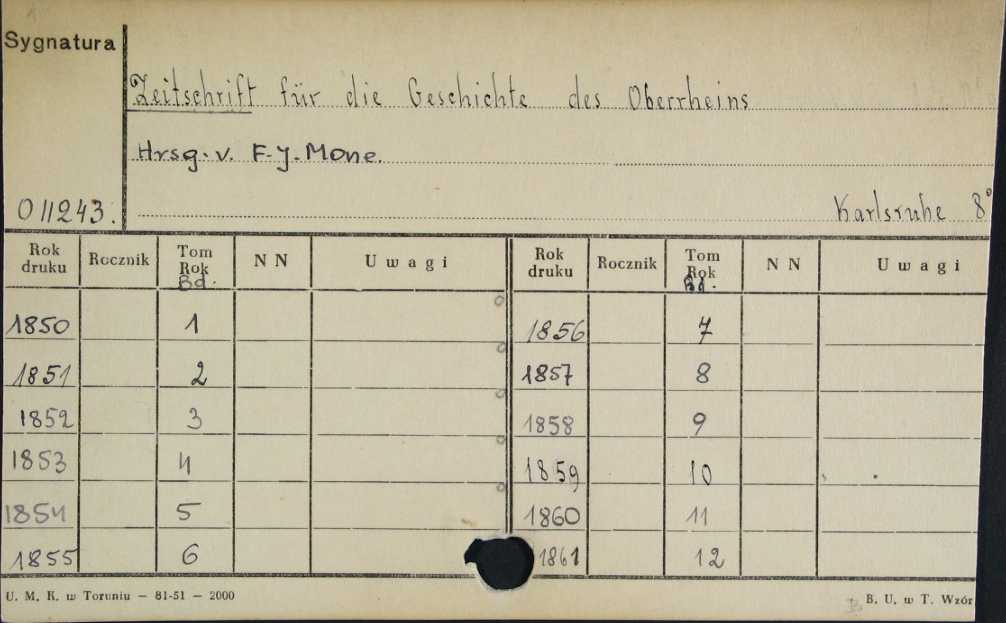 Sygnatura
Zeitschrift für die Geschichte des Oberrheins
Hrsg. v. F-J. Mone.
011243. Karlsruhe 8°
Rok druku Rocznik Tom Rok Bd. NN Uwagi Rok druku Rocznik Tom Rok Bd. NN Uwagi
1850 1 1856 7
1851 2 1857 8
1852 3 1858 9
1853 4 1859 10
1854 5 1860 11
1855 6 1861 12
U. M. K. w Toruniu — 81-51 — 2000 B. U. w T. Wzór